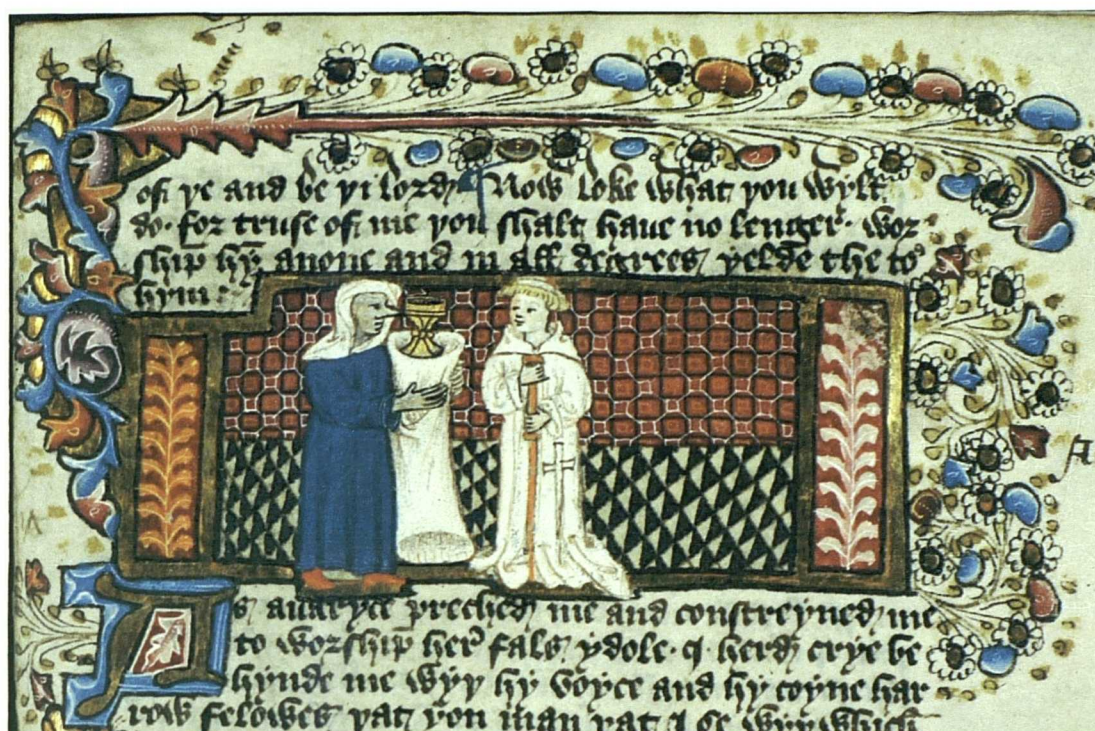 of ye and be yi lord Now loke what you wylt
do. for truse of me you shalt haue no lenger. wor
ship hȳ anone and in all degrees yelde the to
hym.
s auaryce preched me and constreyned me
to worship her fals ydole. I herd crye be
hynde me wyy hy voyce and hy coyne har
row felowes yat yon man yat I se wyy which
A